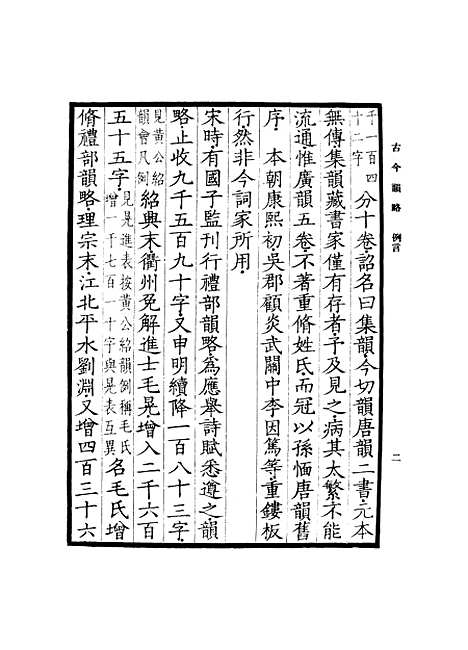 古今韻略 例言 二
千一百四
十二字
分十卷詔名曰集韻今切韻唐韻二書元本
無傳集韻藏書家僅有存者予及見之病其太繁不能
流通惟廣韻五卷不著重脩姓氏而冠以孫愐唐韻舊
序 本朝康熙初吳郡顧炎武關中李因篤等重鏤板
行然非今詞家所用
宋時有國子監刊行禮部韻略為應舉詩賦悉遵之韻
略止收九千五百九十字又申明續降一百八十三字
見黃公紹
韻會凡例
紹興末衢州免解進士毛晃增入二千六百
五十五字
見晃進表按黃公紹韻例稱毛氏
增一千七百一十字與晃表互異
名毛氏增
脩禮部韻略理宗末江北平水劉淵又增四百三十六